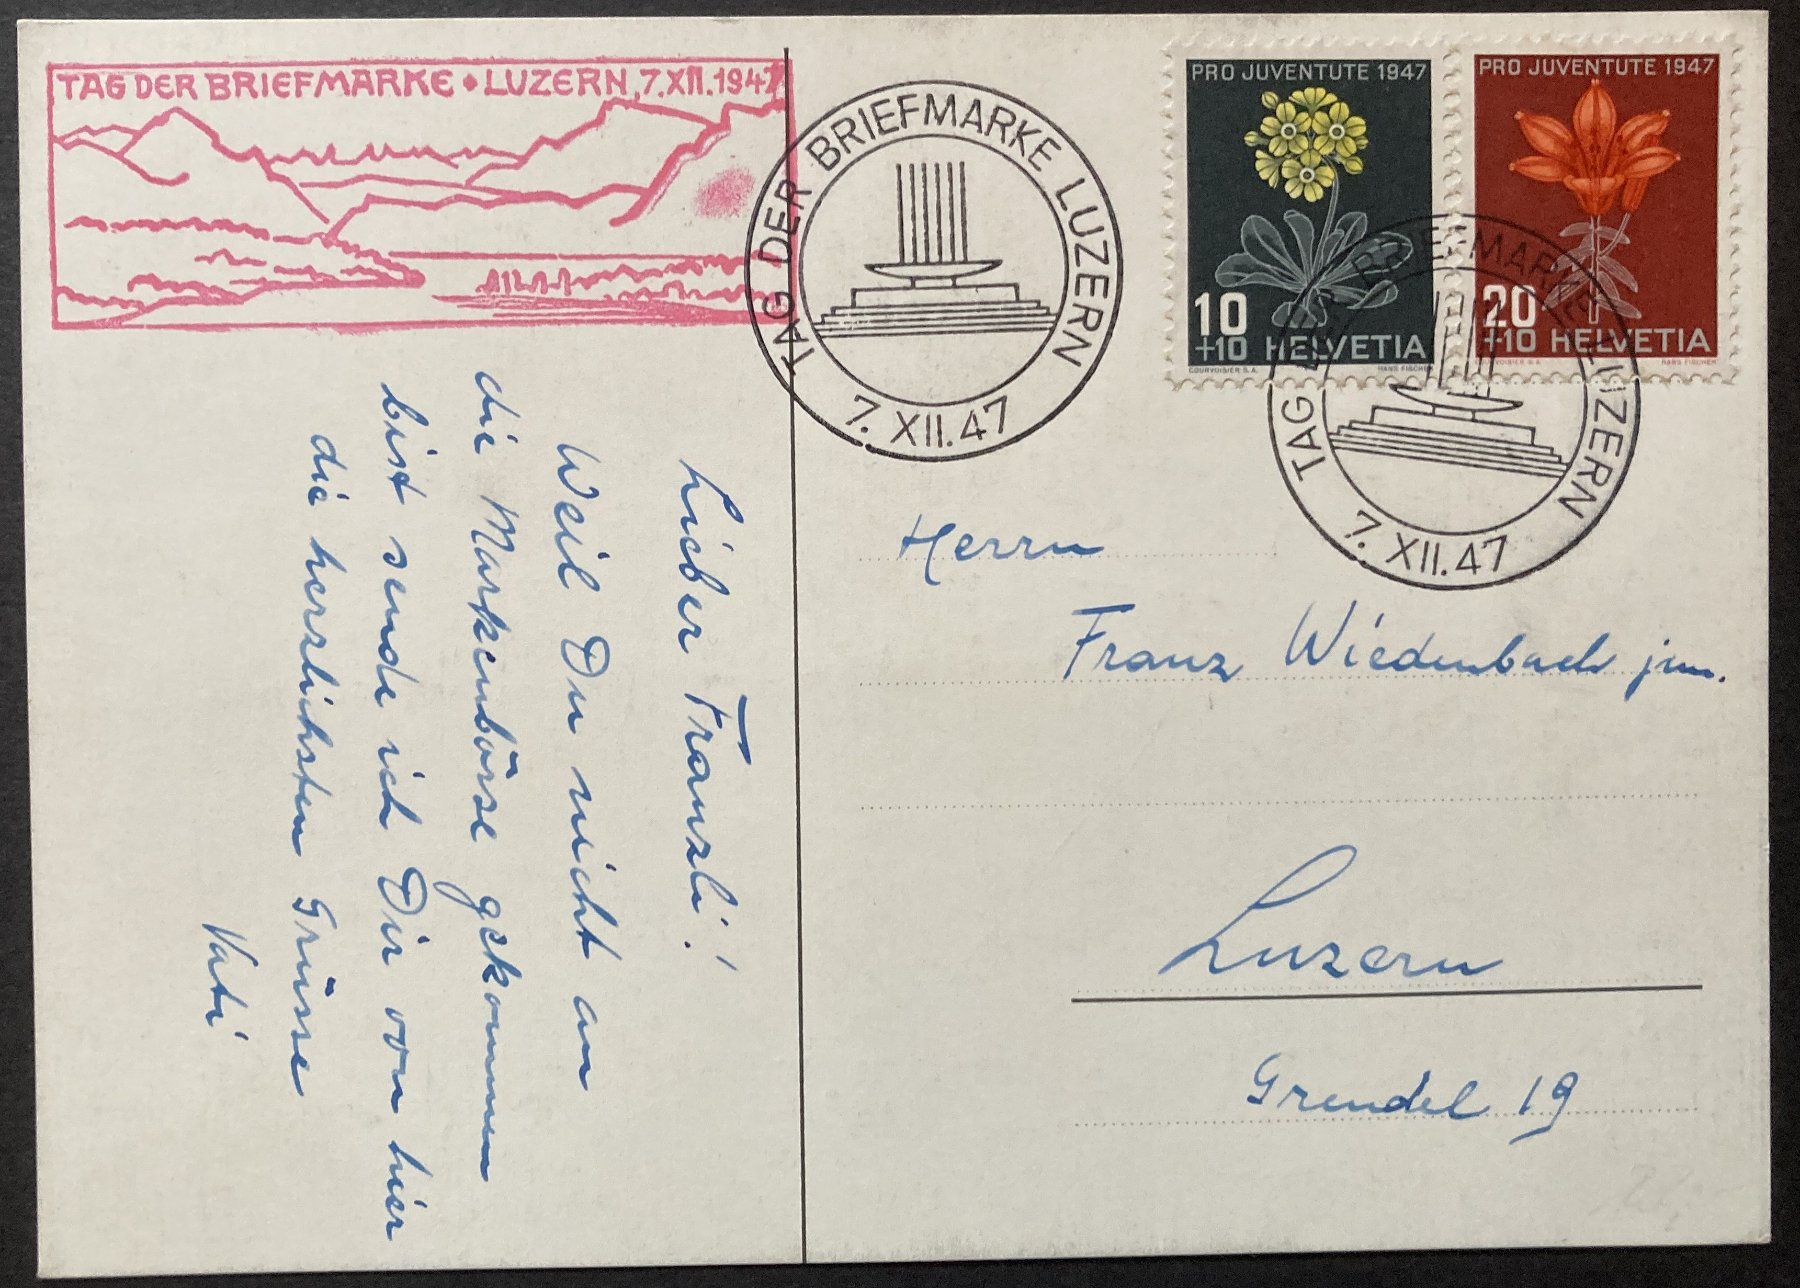 TAG DER BRIEFMARKE • LUZERN, 7.XII.1947
TAG DER BRIEFMARKE LUZERN
7. XII. 47
PRO JUVENTUTE 1947
10
+10 HELVETIA
COURVOISIER S.A. HANS FISCHER
PRO JUVENTUTE 1947
20
+10 HELVETIA
COURVOISIER S.A. HANS FISCHER
TAG DER BRIEFMARKE LUZERN
7. XII. 47
Lieber Franzli!
Weil Du nicht an
die Markenbörse gekommen
bist sende ich Dir von hier
die herzlichsten Grüsse
Vati
Herrn
Franz Wiedenbach jun.
Luzern
Grendel 19